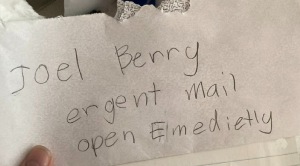 Joel Berry
ergent mail
open Emedietly